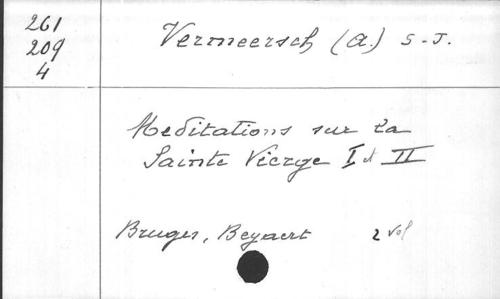 261
209
4
Vermeersch (A.) S-J.
Meditations sur la
Sainte Vierge I et II
Bruges, Beyaert 2 vol